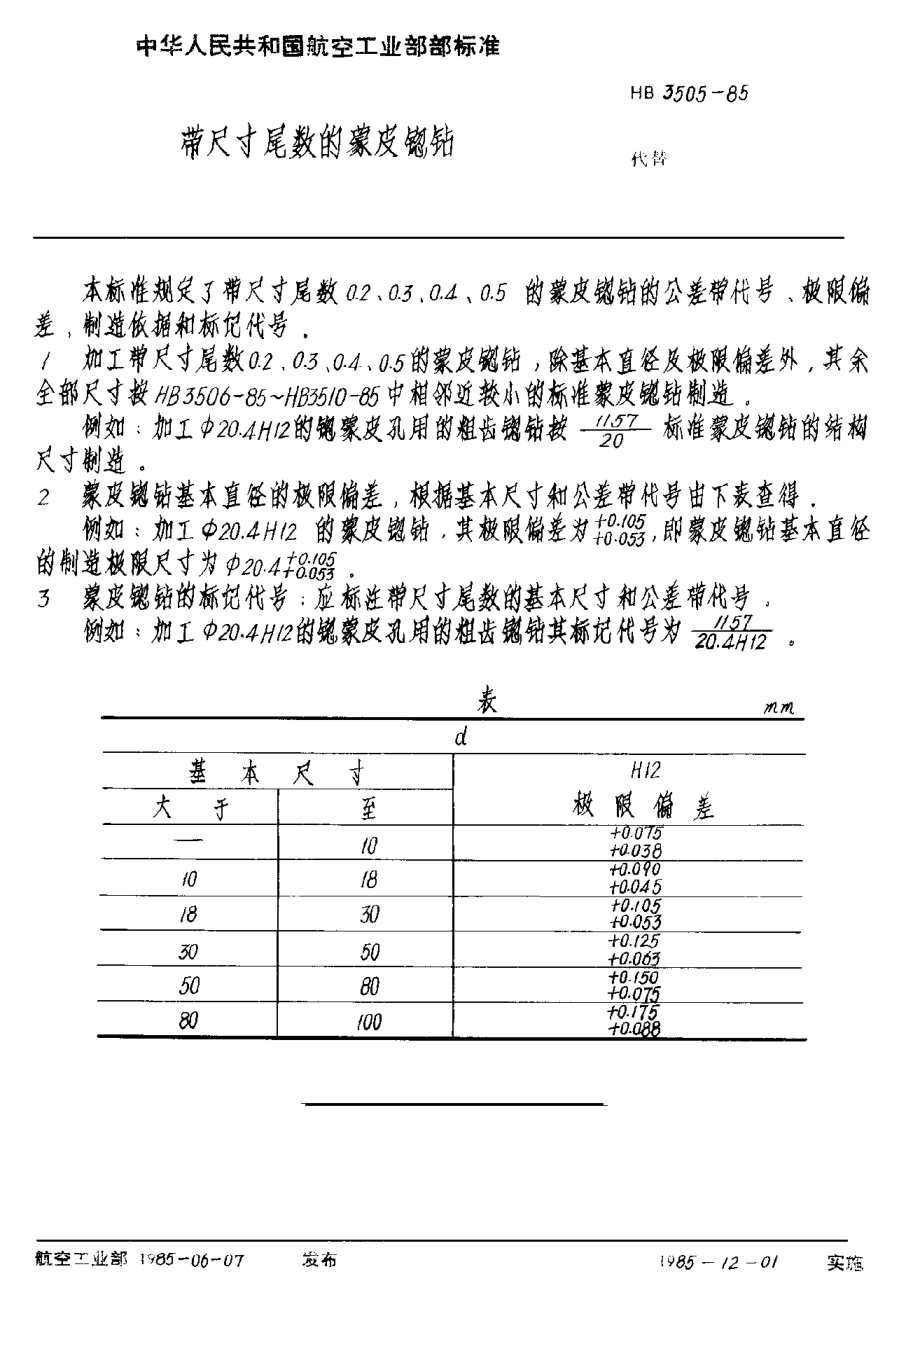 中华人民共和国航空工业部部标准
HB 3505-85
带尺寸尾数的蒙皮锪钻
代替
本标准规定了带尺寸尾数0.2、0.3、0.4、0.5 的蒙皮锪钻的公差带代号、极限偏
差,制造依据和标记代号.
1 加工带尺寸尾数0.2、0.3、0.4、0.5的蒙皮锪钻,除基本直径及极限偏差外,其余
全部尺寸按HB3506-85~HB3510-85中相邻近较小的标准蒙皮锪钻制造。
例如:加工Φ20.4H12的锪蒙皮孔用的粗齿锪钻按 1157/20 标准蒙皮锪钻的结构
尺寸制造。
2 蒙皮锪钻基本直径的极限偏差,根据基本尺寸和公差带代号由下表查得.
例如:加工Φ20.4H12 的蒙皮锪钻,其极限偏差为 +0.105 +0.053,即蒙皮锪钻基本直径
的制造极限尺寸为Φ20.4 +0.105 +0.053。
3 蒙皮锪钻的标记代号:应标注带尺寸尾数的基本尺寸和公差带代号。
例如:加工Φ20.4H12的锪蒙皮孔用的粗齿锪钻其标记代号为 1157/20.4H12 。
表 mm
d
基本尺寸 H12
大于 至 极限偏差
— 10 +0.075 +0.038
10 18 +0.090 +0.045
18 30 +0.105 +0.053
30 50 +0.125 +0.063
50 80 +0.150 +0.075
80 100 +0.175 +0.088
航空工业部 1985-06-07 发布 1985-12-01 实施